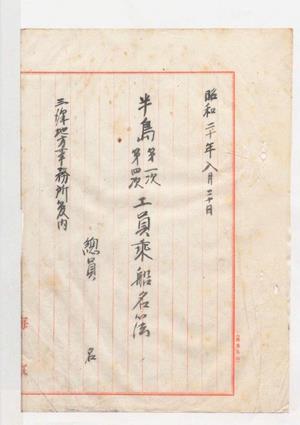 昭和二十年八月二十日
半島第一次第四次工員乘船名簿
三深地方事務所管内
總員 名